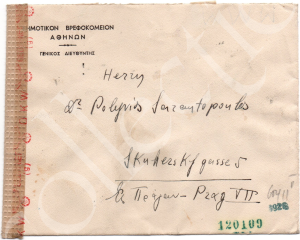 ΔΗΜΟΤΙΚΟΝ ΒΡΕΦΟΚΟΜΕΙΟΝ
ΑΘΗΝΩΝ
ΓΕΝΙΚΟΣ ΔΙΕΥΘΥΝΤΗΣ
Herrn
Dr Polyvios Sarantopoulos
Skuherskygasse 5
Prag VII
120109